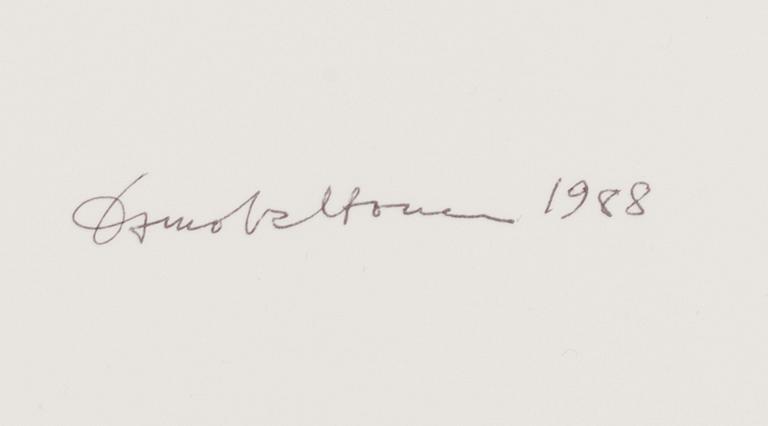 Osmo Valtonen 1988